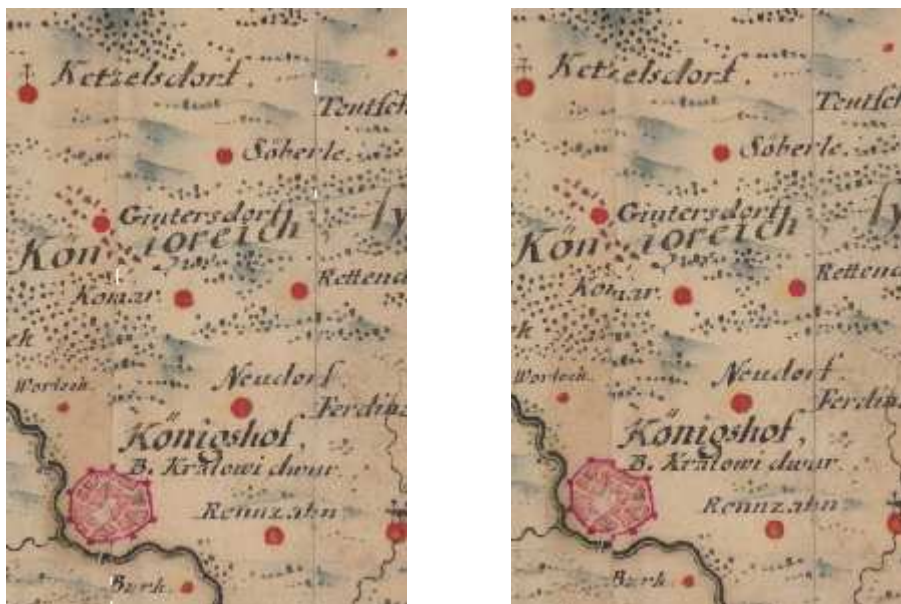 Ketzelsdorf.
Teutsch
Söberle.
Gintersdorf
Kön igreich
Kettend
Komar
Neudorf
Worlech.
Ferdin
Königshof,
B. Kralowi dwur.
Rennzahn
Burk.
Ketzelsdorf.
Teutsch
Söberle.
Gintersdorf
Kön igreich
Kettend
Komar
Neudorf
Worlech.
Ferdin
Königshof,
B. Kralowi dwur.
Rennzahn
Burk.